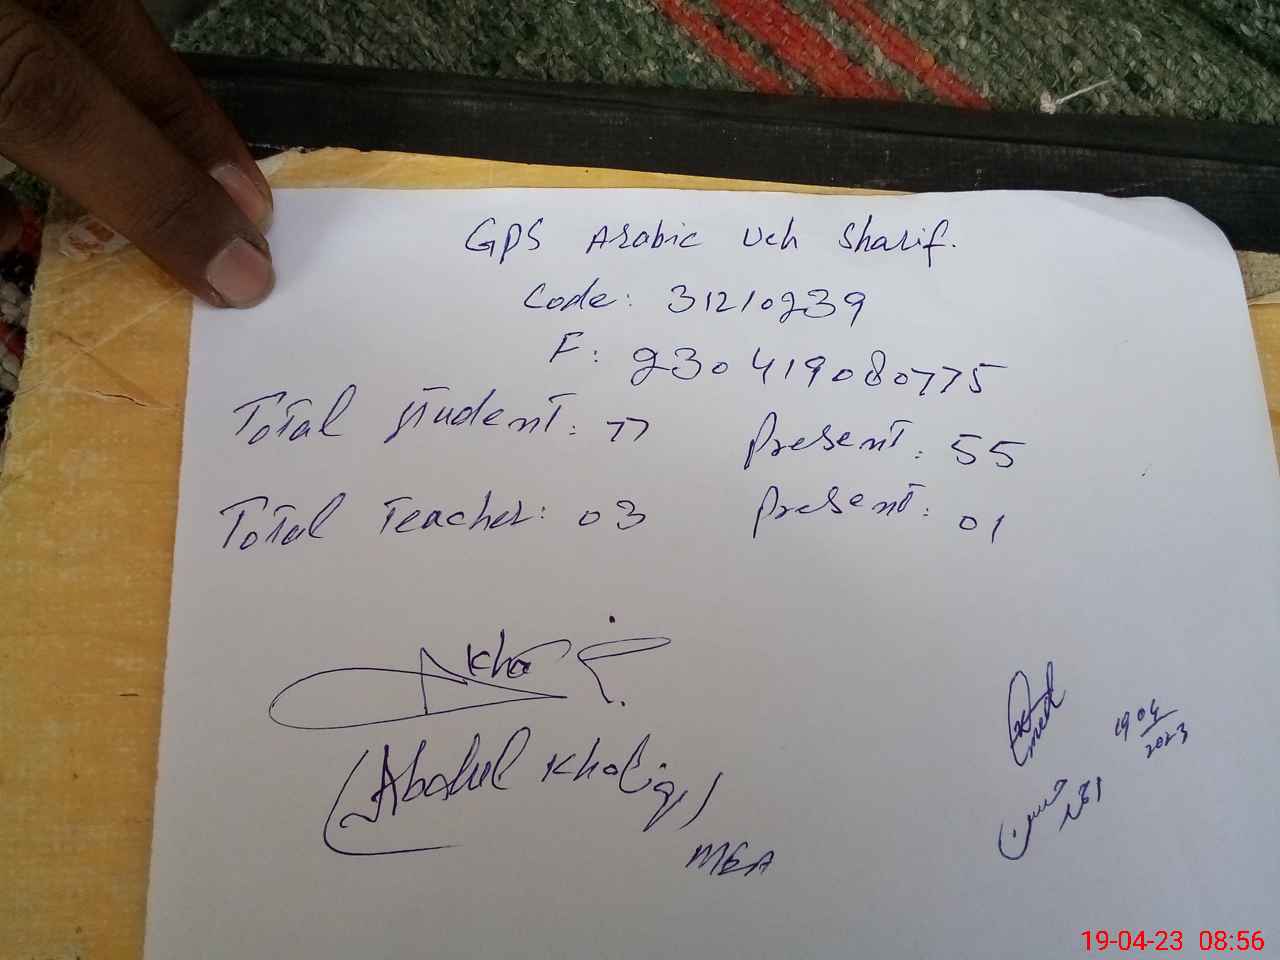 GPS Arabic Uch Sharif.
Code: 31210239
F: 230419080775
Total student: 77 Present: 55
Total Teacher: 03 Present: 01
(Abdul Khaliq)
MEA
19 04
2023
19-04-23 08:56